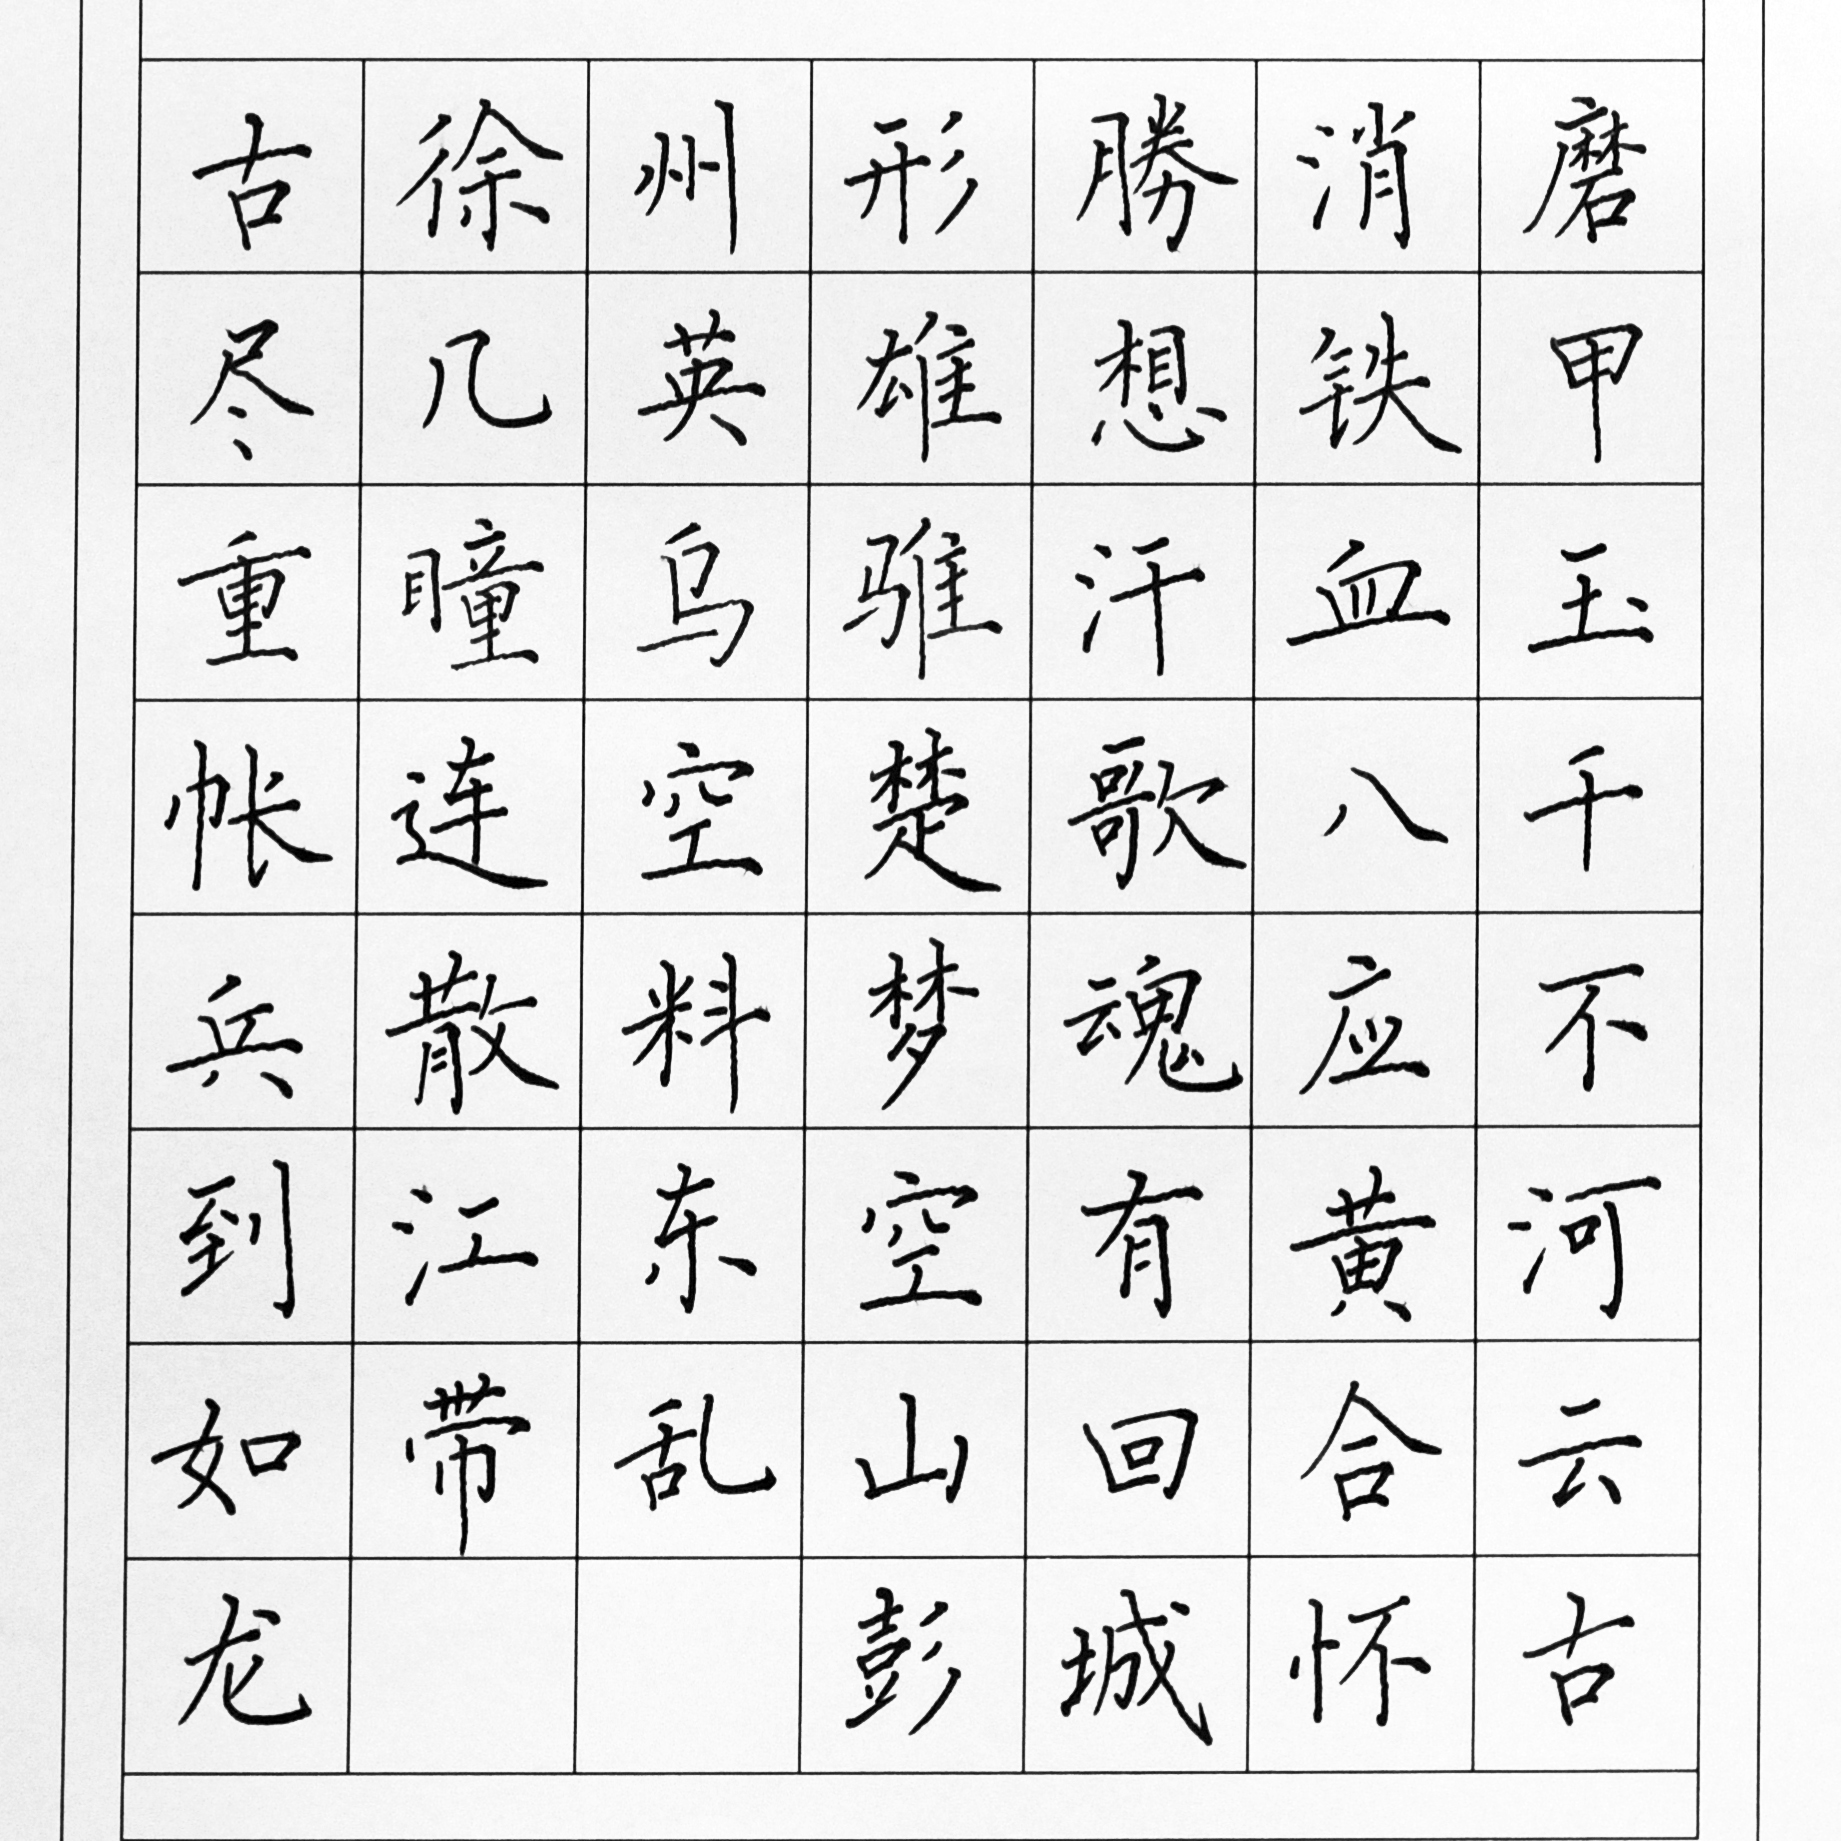 古徐州形勝消磨
尽几英雄想铁甲
重瞳乌骓汗血玉
帐连空楚歌八千
兵散料梦魂应不
到江东空有黄河
如带乱山回合云
龙 彭城怀古